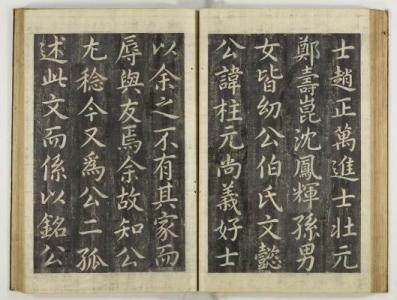 士趙正萬進士壯元
鄭壽崑沈鳳輝孫男
女皆幼公伯氏文懿
公諱柱元尚義好士
以余之不有其家而
辱與友焉余故知公
尢稔今又爲公二孤
述此文而係以銘公